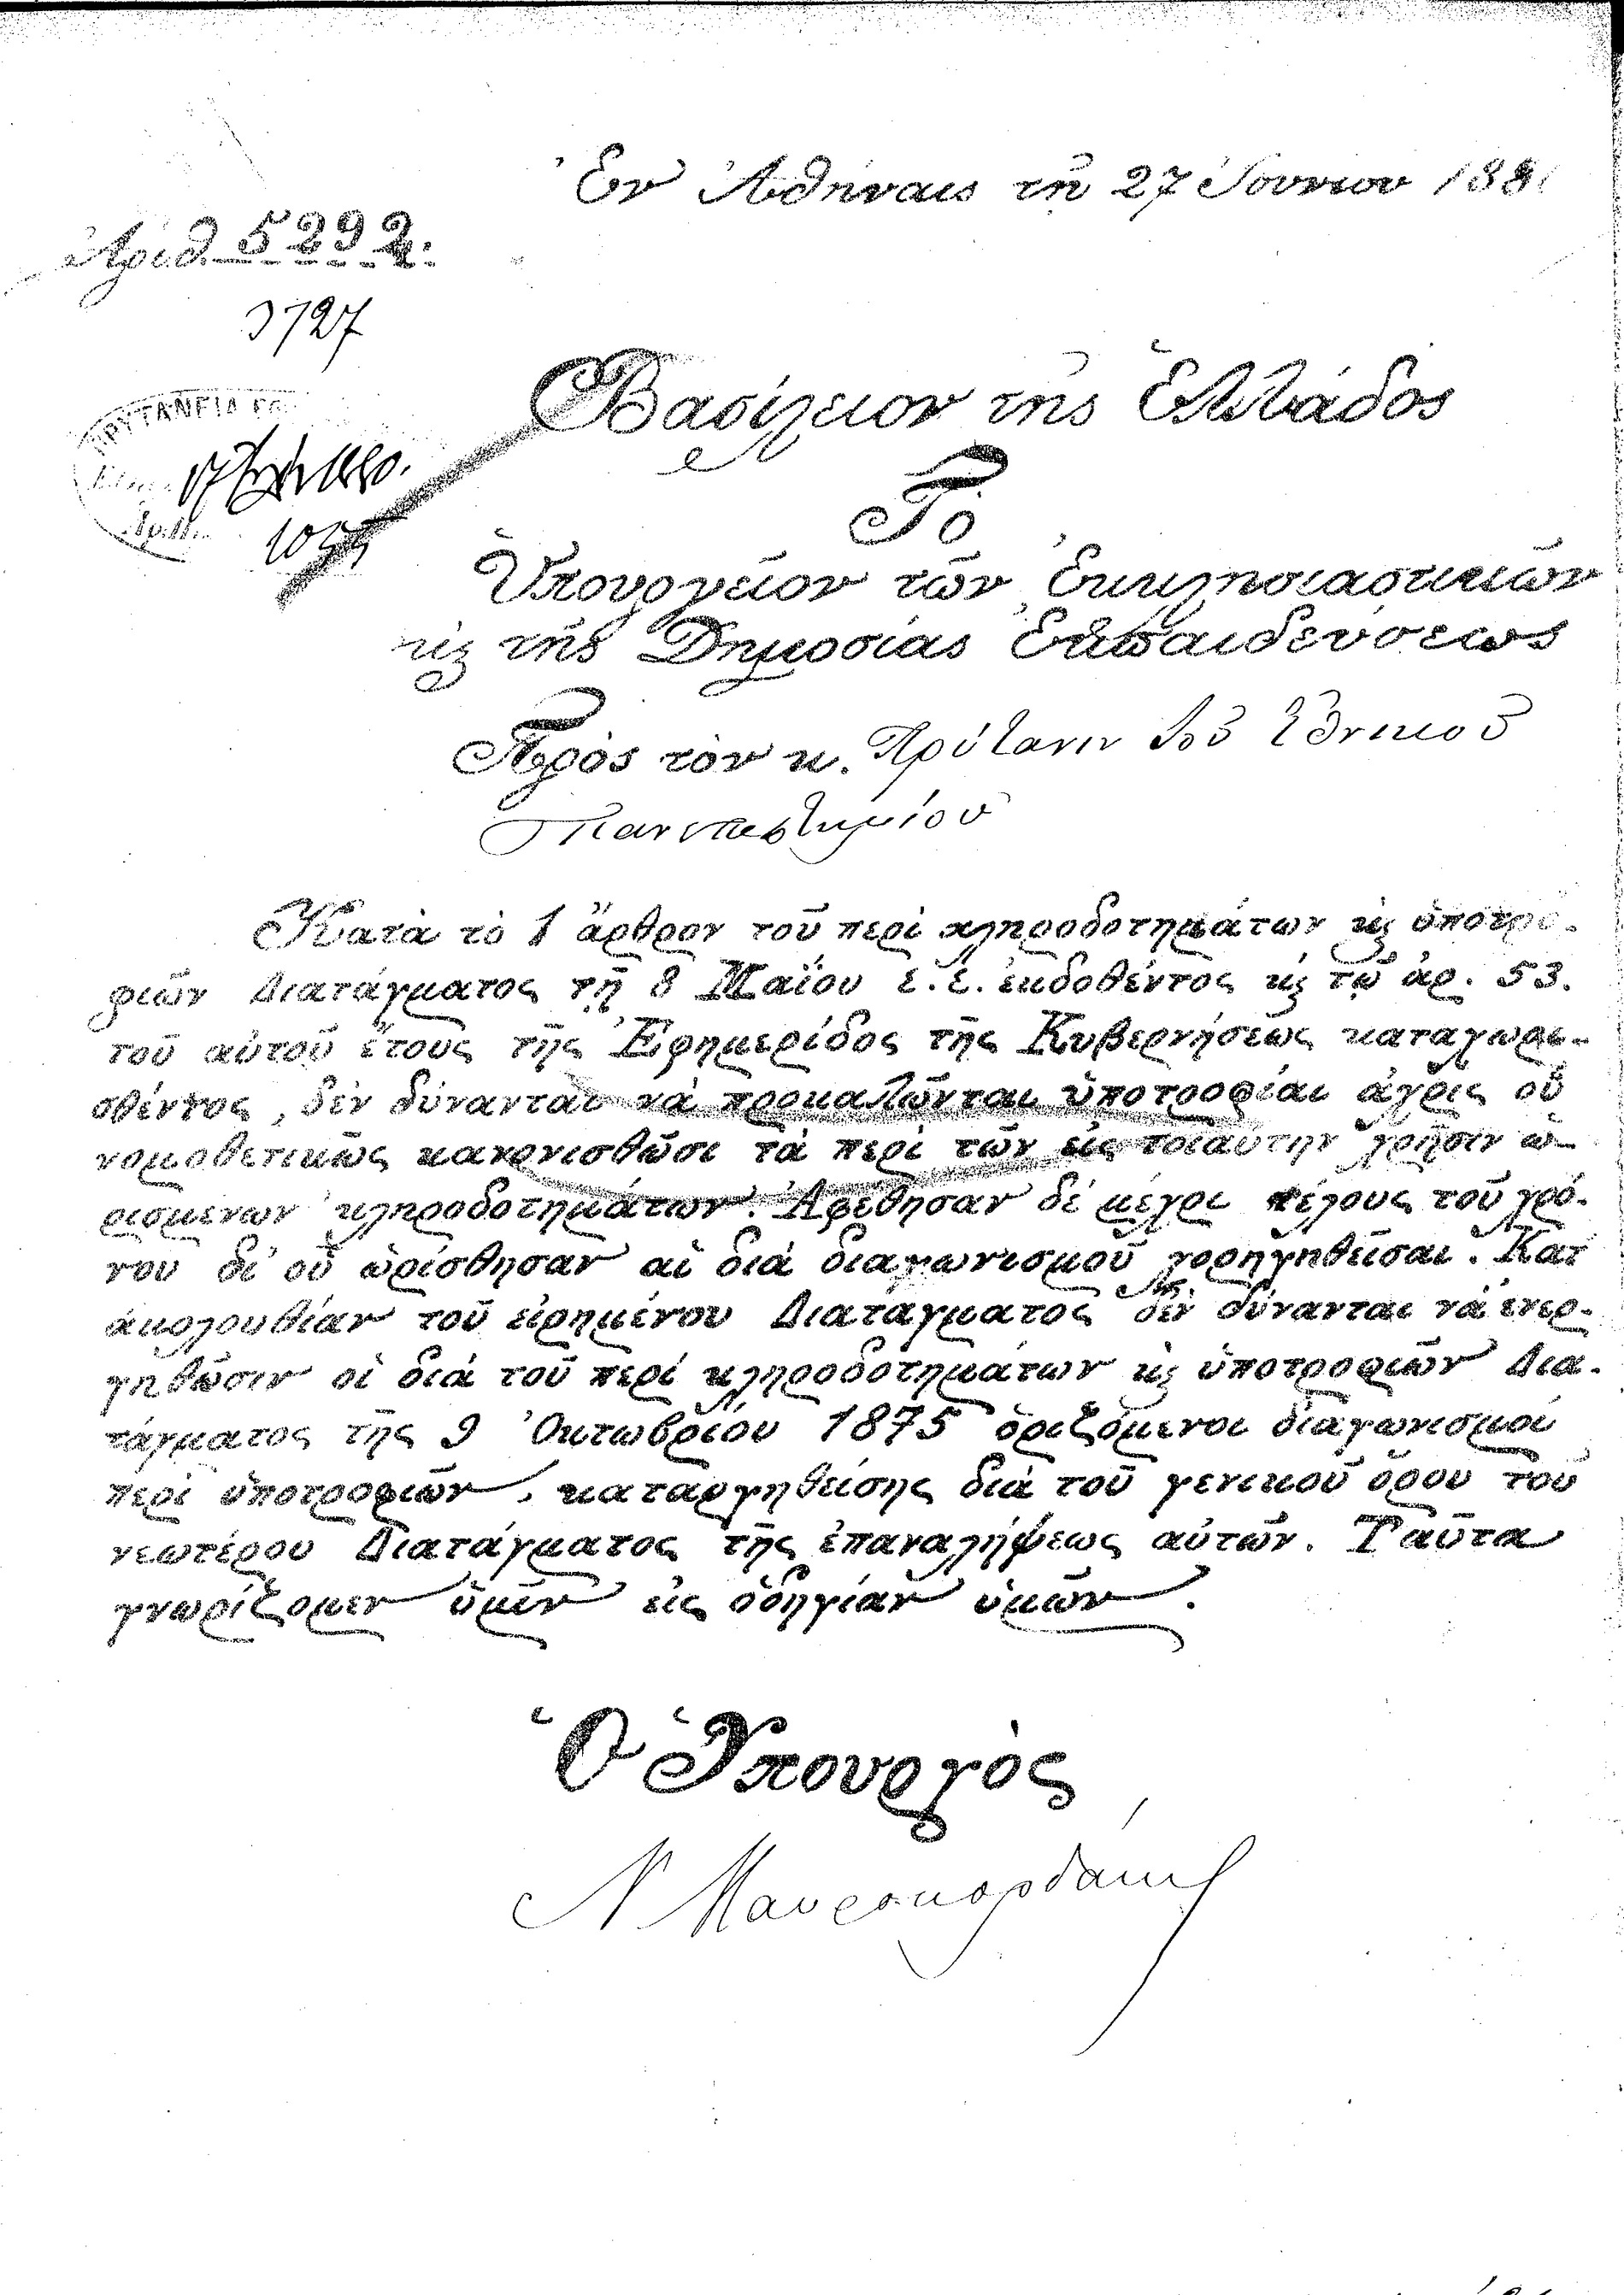 Ἐν Ἀθήναις τῇ 27 Ἰουνίου 188
Ἀριθ. 5292.
3727
ΠΡΥΤΑΝΕΙΑ
Ἀριθ.
Βασίλειον τῆς Ἑλλάδος
Τὸ
Ὑπουργεῖον τῶν Ἐκκλησιαστικῶν
κ̀ τῆς Δημοσίας Ἐκπαιδεύσεως
Πρὸς τὸν κ. Πρύτανιν τοῦ Ἐθνικοῦ
Πανεπιστημίου
Κατὰ τὸ 1 ἄρθρον τοῦ περὶ κληροδοτημάτων κ̀ ὑποτρο-
φιῶν Διατάγματος τῇ 8 Μαΐου ἐ. ἔ. ἐκδοθέντος κ̀ τῷ ἀρ. 53.
τοῦ αὐτοῦ ἔτους τῆς Ἐφημερίδος τῆς Κυβερνήσεως καταχωρι-
σθέντος, δὲν δύνανται νὰ προκαλῶνται ὑποτροφίαι ἄχρις οὗ
νομοθετικῶς κανονισθῶσι τὰ περὶ τῶν εἰς τοιαύτην χρῆσιν ὡ-
ρισμένων κληροδοτημάτων. Ἀφέθησαν δὲ μέχρι τέλους τοῦ χρό-
νου δι' οὗ ὡρίσθησαν αἱ διὰ διαγωνισμοῦ χορηγηθεῖσαι. Κατ'
ἀκολουθίαν τοῦ εἰρημένου Διατάγματος δὲν δύνανται νὰ ἐνερ-
γηθῶσιν οἱ διὰ τοῦ περὶ κληροδοτημάτων κ̀ ὑποτροφιῶν Δια-
τάγματος τῆς 9 Ὀκτωβρίου 1875 ὁριζόμενοι διαγωνισμοὶ
περὶ ὑποτροφιῶν, καταργηθείσης διὰ τοῦ γενικοῦ ὅρου τοῦ
νεωτέρου Διατάγματος τῆς ἐπαναλήψεως αὐτῶν. Ταῦτα
γνωρίζομεν ὑμῖν εἰς ὁδηγίαν ὑμῶν.
Ὁ Ὑπουργὸς
Ν Μαυροκορδάτος